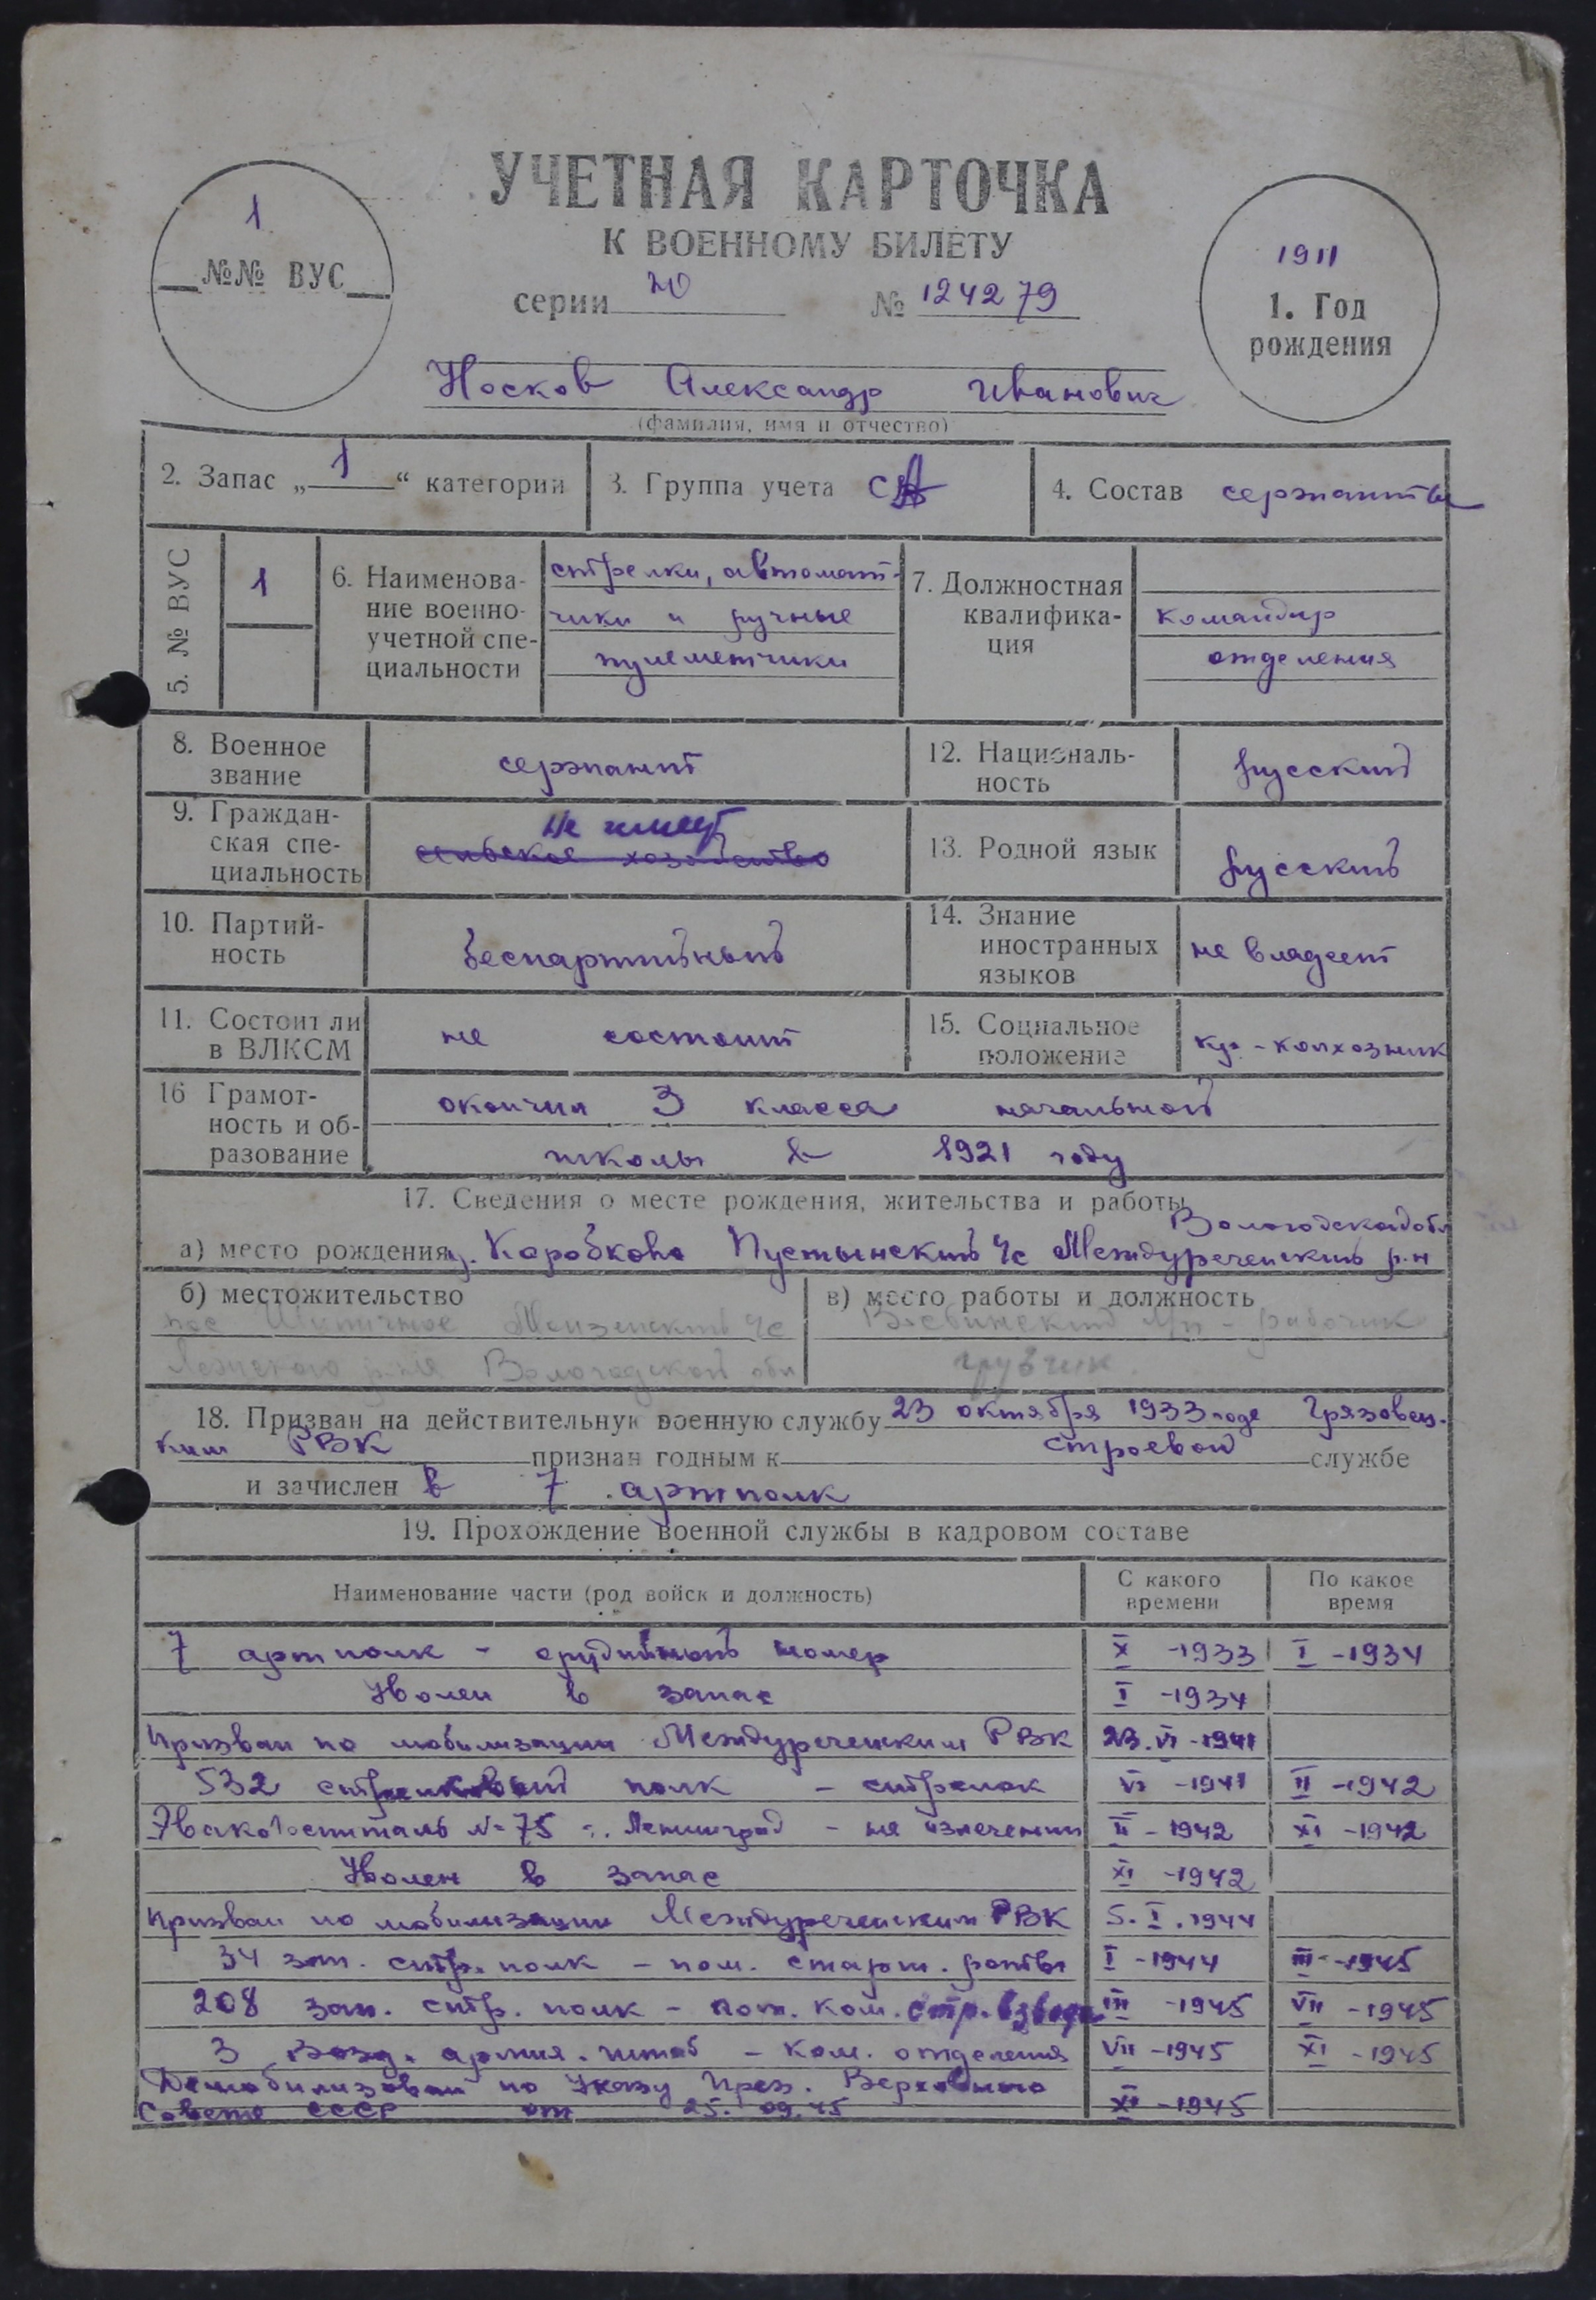 УЧЕТНАЯ КАРТОЧКА
К ВОЕННОМУ БИЛЕТУ
1
№№ ВУС
серии № 1242 79
1911
1. Год
рождения
Носков Александр Иванович
(фамилия, имя и отчество)
2. Запас „1“ категории
3. Группа учета СА
4. Состав сержанты
5. № ВУС
1
6. Наименова-
ние военно-
учетной спе-
циальности
стрелки, автомат-
чики и ручные
пулеметчики
7. Должностная
квалифика-
ция
командир
отделения
8. Военное
звание
сержант
12. Националь-
ность
русский
9. Граждан-
ская спе-
циальность
не имеет
сельское хозяйство
13. Родной язык
русский
10. Партий-
ность
беспартийный
14. Знание
иностранных
языков
не владеет
11. Состоит ли
в ВЛКСМ
не состоит
15. Социальное
положение
кр-колхозник
16 Грамот-
ность и об-
разование
окончил 3 класса начальной
школы в 1921 году
17. Сведения о месте рождения, жительства и работы
Вологодской обл
а) место рождения д. Коробково Пустынский с/с Междуреченский р-н
б) местожительство
пос с/с
Вологодской обл
в) место работы и должность
рабочик
грузчик
18. Призван на действительную военную службу 23 октября 1933 года Грязовец-
ким РВК признан годным к строевой службе
и зачислен в 7 артполк
19. Прохождение военной службы в кадровом составе
Наименование части (род войск и должность)
С какого
времени
По какое
время
7 артполк - орудийный номер X -1933 I -1934
Уволен в запас I -1934
Призван по мобилизации Междуреченским РВК 23.VI-1941
532 стрелковый полк - стрелок VI -1941 II -1942
Эвакогоспиталь №75 г. Ленинград - на излечении II -1942 XI -1942
Уволен в запас XI -1942
Призван по мобилизации Междуреченским РВК 5.I.1944
34 зап. стр. полк - пом. старш. роты I -1944 III -1945
208 зап. стр. полк - пом. ком. стр. взвода III -1945 VII -1945
3 возд. армия. штаб - ком. отделения VII -1945 XI -1945
Демобилизован по Указу През. Верховного
Совета СССР от 25.09.45 XI -1945